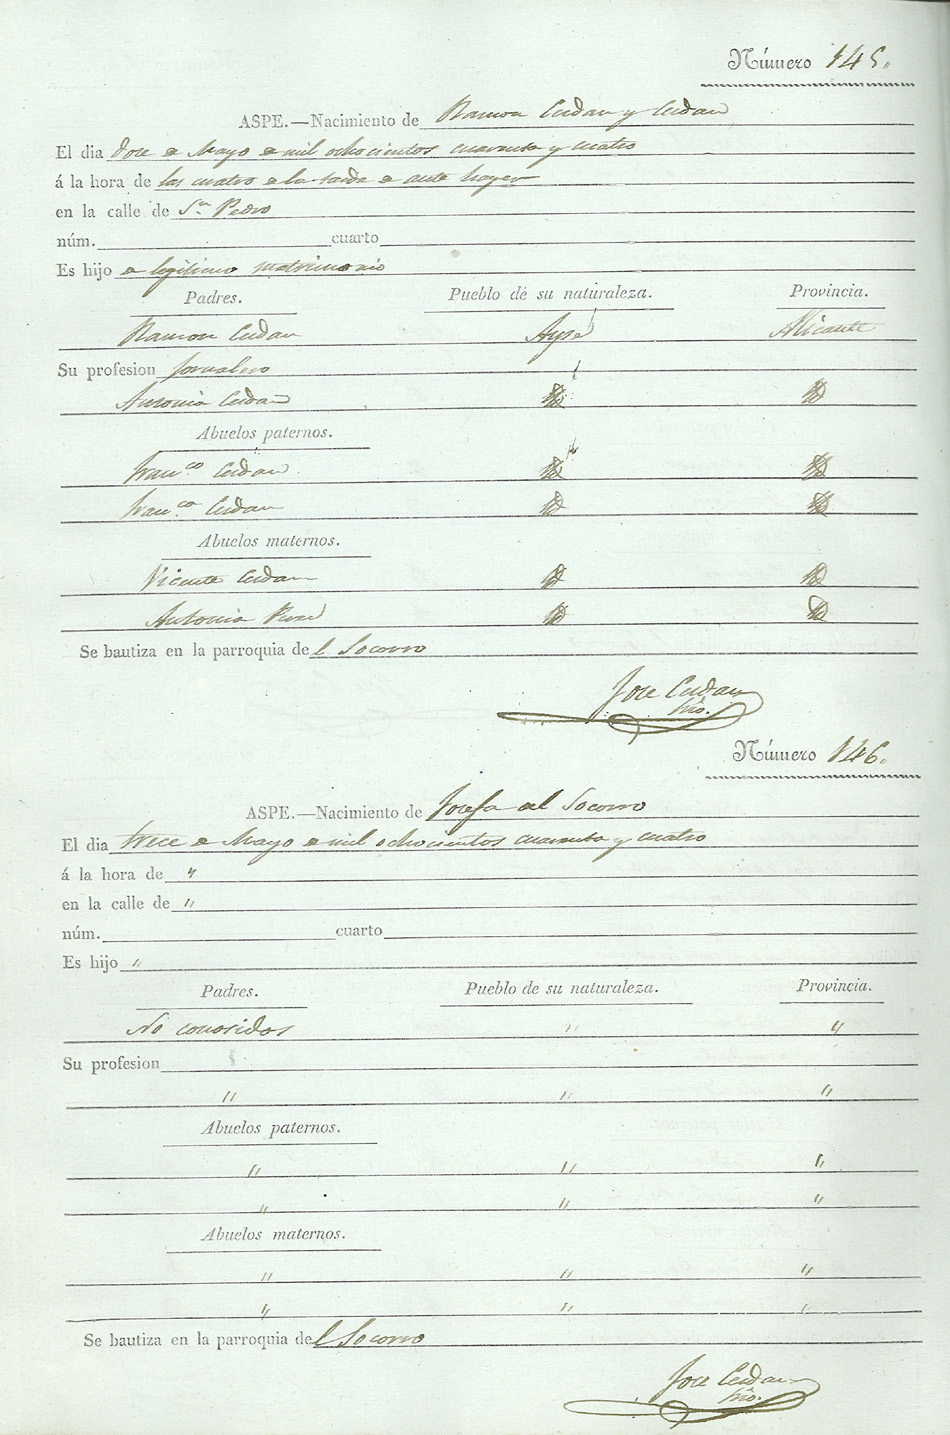 Número 145.
ASPE.—Nacimiento de Ramon Cerdan y Cerdan
El dia doce de Mayo de mil ochocientos cuarenta y cuatro
á la hora de las cuatro de la tarde de ante hayer
en la calle de Sn. Pedro
núm. cuarto
Es hijo de legitimo matrimonio
Padres. Pueblo de su naturaleza. Provincia.
Ramon Cerdan Aspe Alicante
Su profesion Jornalero
Antonia Cerdan Id Id
Abuelos paternos.
Franco. Cerdan Id Id
Franca. Cerdan Id Id
Abuelos maternos.
Vicente Cerdan Id Id
Antonia Id Id
Se bautiza en la parroquia del Socorro
Jose Cerdan
Srio.
Número 146.
ASPE.—Nacimiento de Josefa del Socorro
El dia trece de Mayo de mil ochocientos cuarenta y cuatro
á la hora de "
en la calle de "
núm. cuarto
Es hijo "
Padres. Pueblo de su naturaleza. Provincia.
No conosidos " "
Su profesion
" " "
Abuelos paternos.
" " "
" " "
Abuelos maternos.
" " "
" " "
Se bautiza en la parroquia del Socorro
Jose Cerdan
Srio.